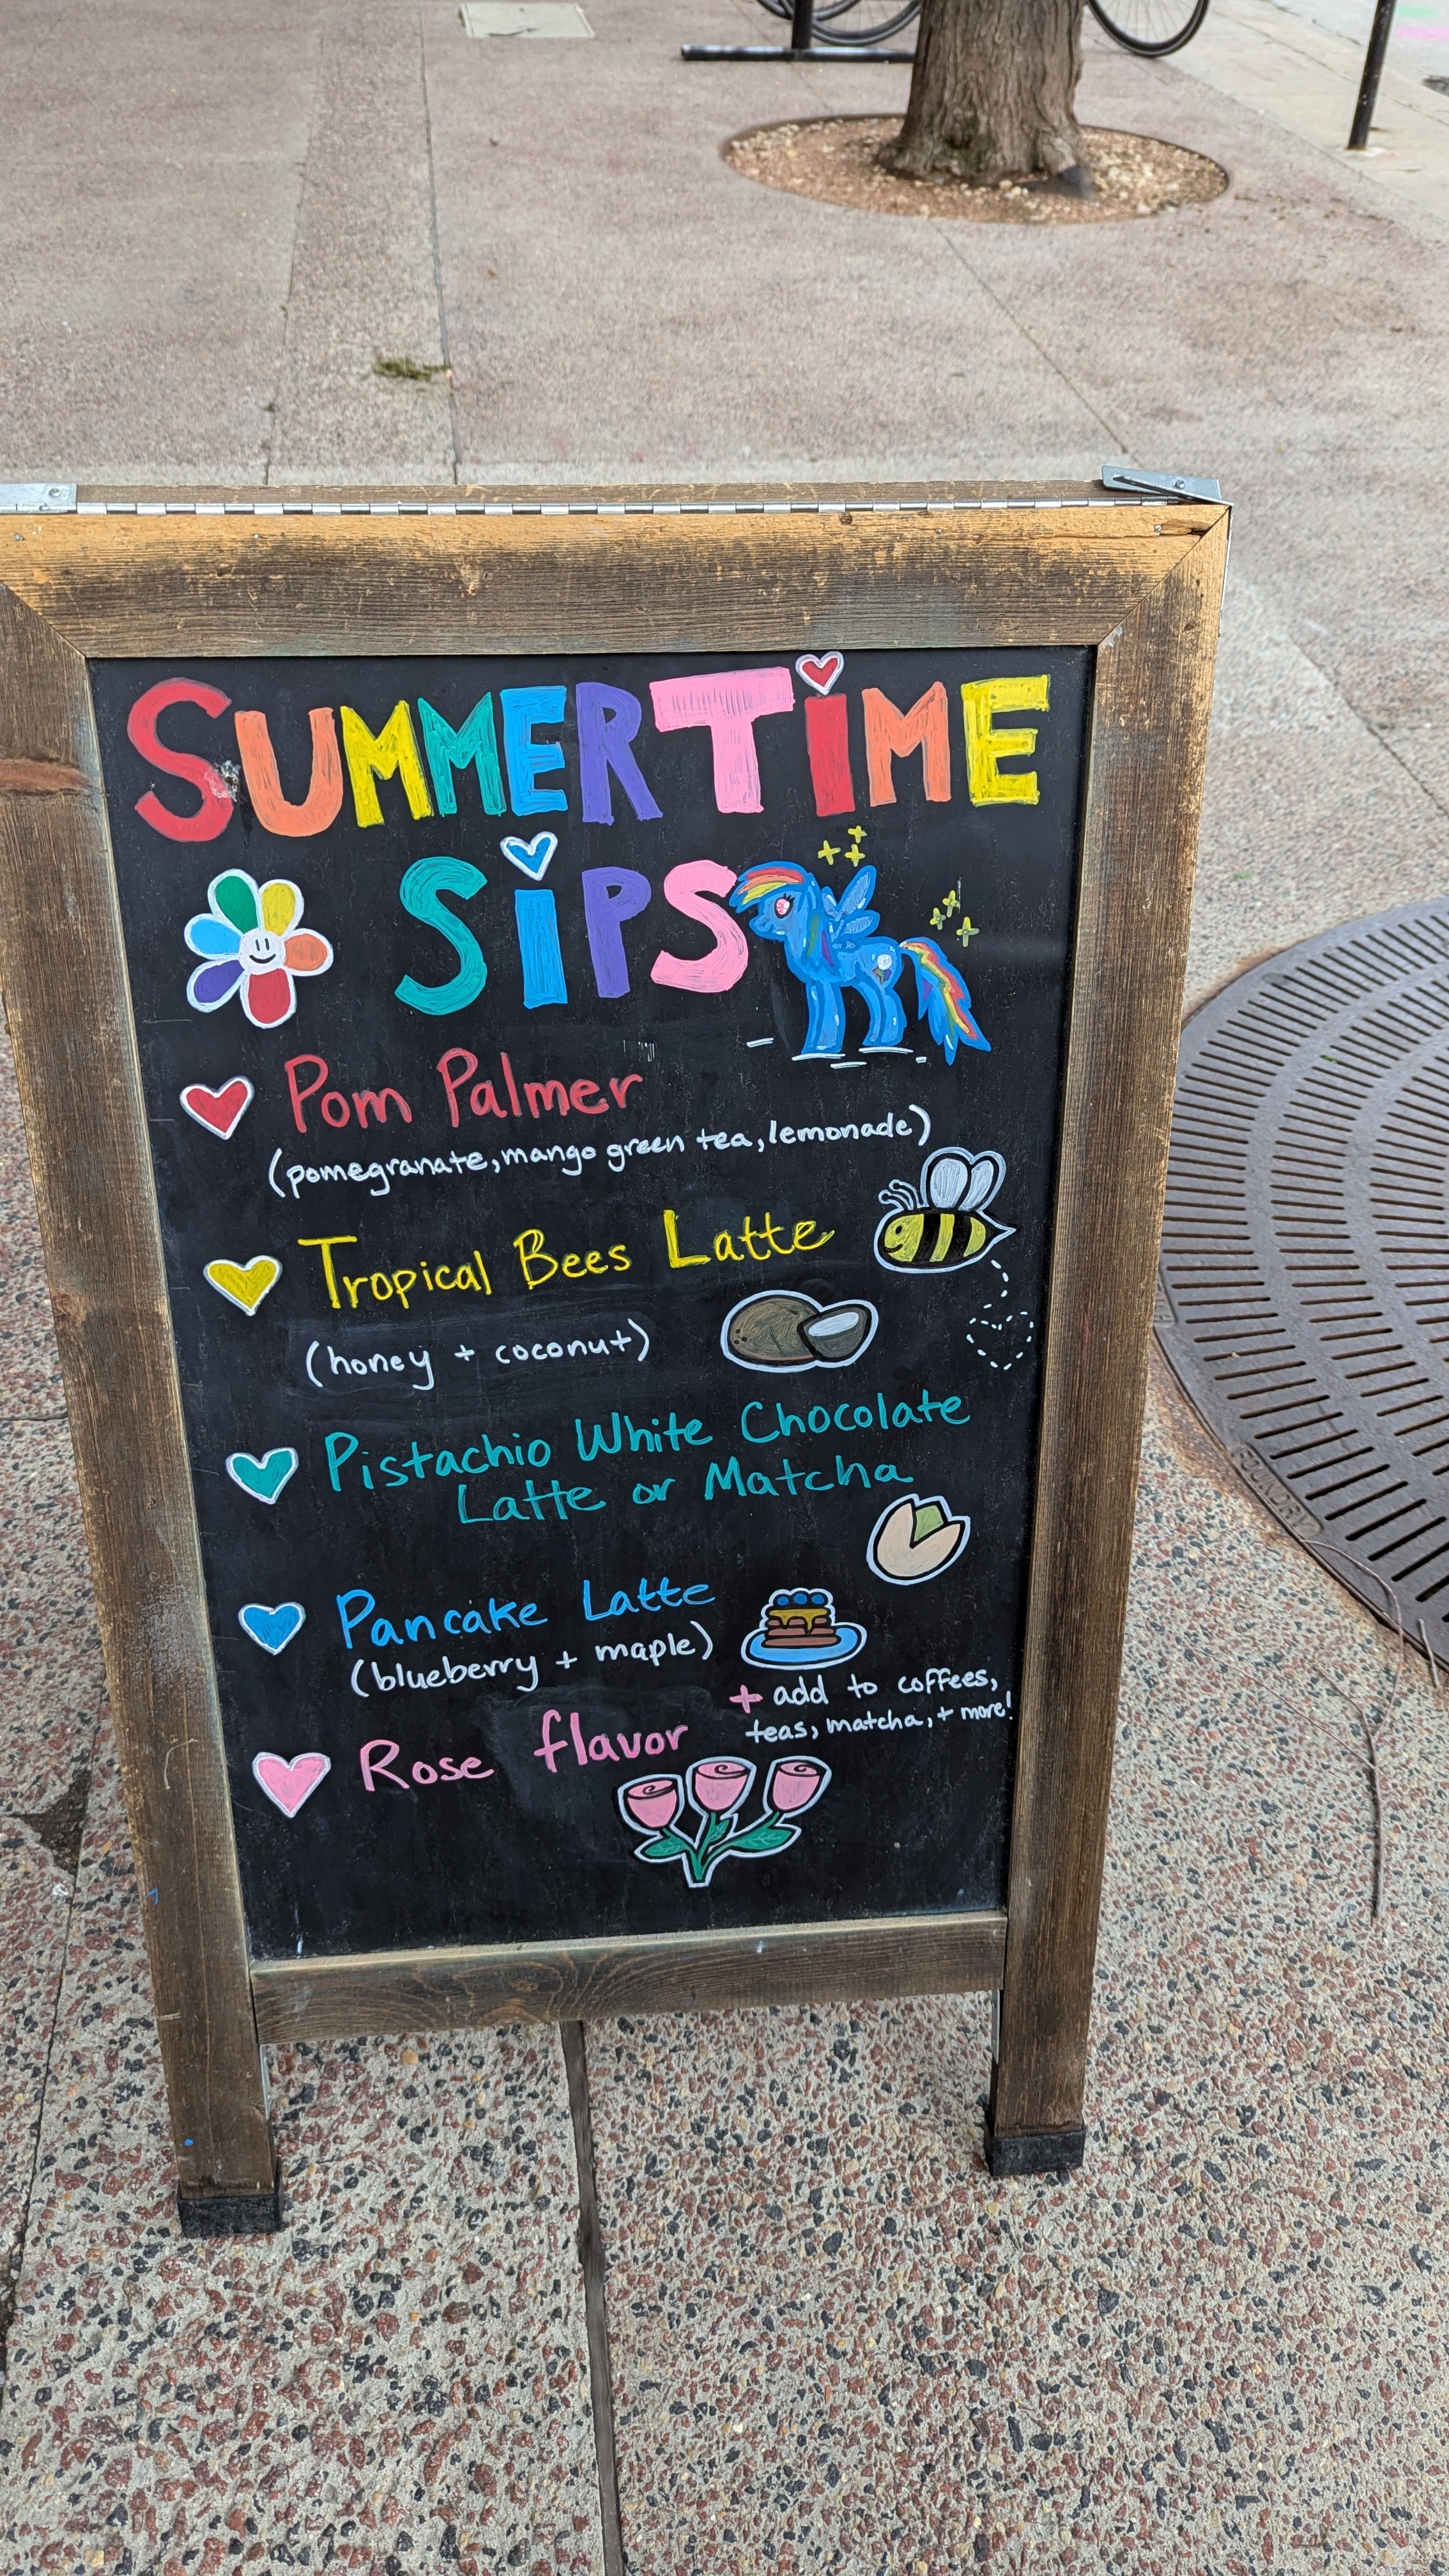 SUMMERTiME
SiPS
Pom Palmer
(pomegranate, mango green tea, lemonade)
Tropical Bees Latte
(honey + coconut)
Pistachio White Chocolate
Latte or Matcha
Pancake Latte
(blueberry + maple)
+ add to coffees,
teas, matcha, + more!
Rose flavor